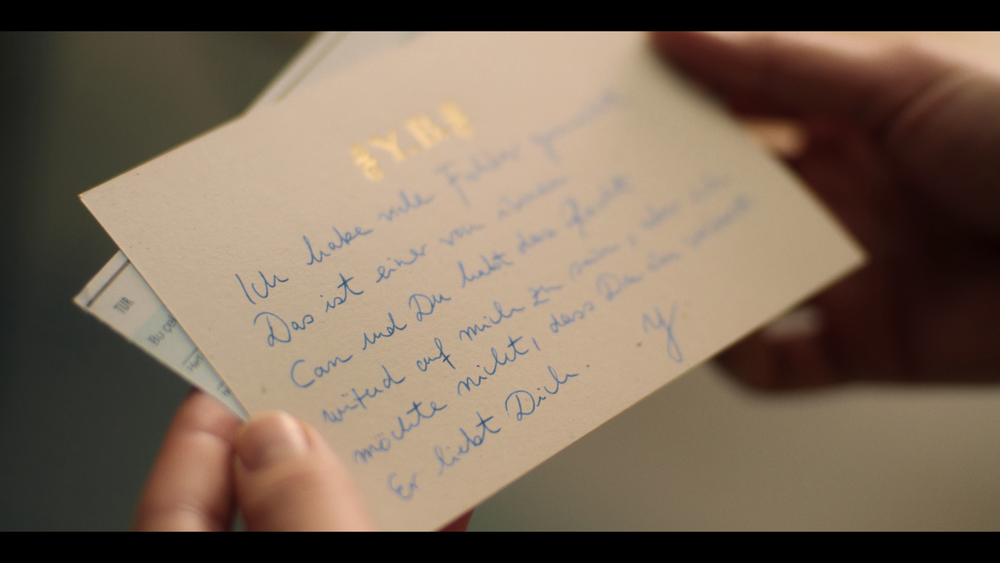 Y.B
Ich habe viele Fehler gemacht
Das ist einer von ihnen
Can und Du habt das Recht
wütend auf mich zu sein, aber ich
möchte nicht, dass Du ihn
Er liebt Dich.
Y
TUR